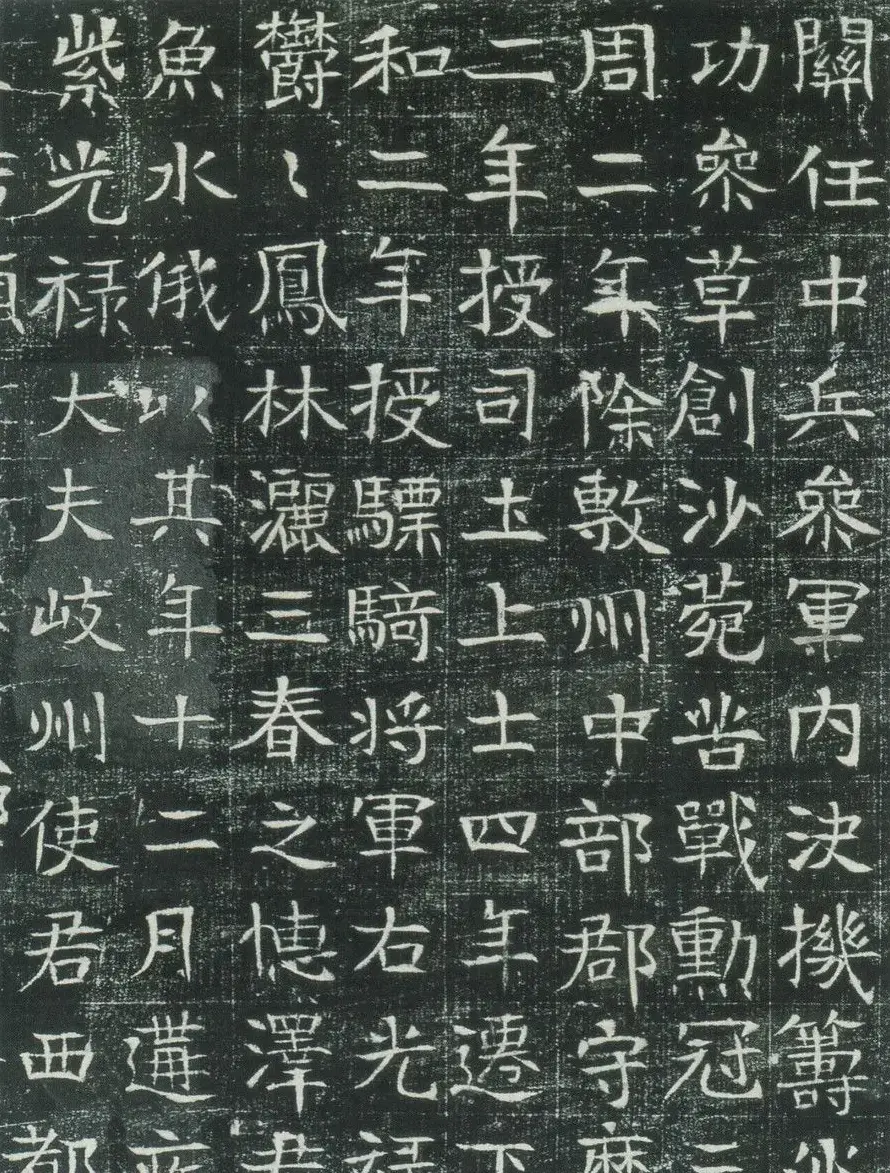 關任中兵叅軍內決機籌
功叅草創沙菀苦戰勳冠三
周二年除敷州中部郡守
二年授司土上士四年遷下
和二年授驃騎将軍右光禄
鬱〻鳳林灑三春之憓澤
魚水俄以其年十二月遘疾
紫光禄大夫岐州使君西都